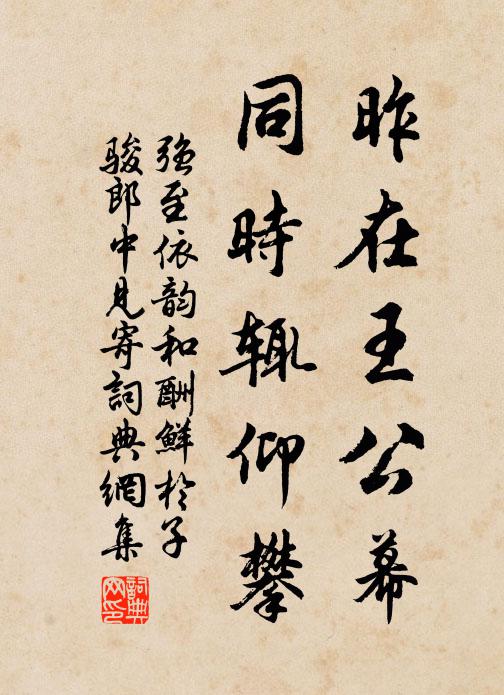 昨在王公幕
同時辄仰攀
强至依韵和酬鮮於子
骏郎中見寄詞典網集
詞典網印